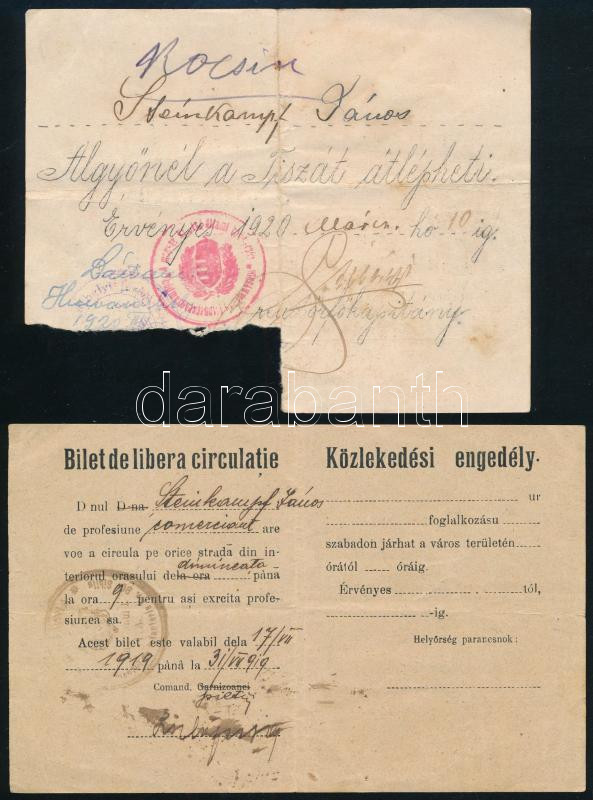 Kocsin
Steinkampf János
Algyőnél a Tiszát átlépheti.
Érvényes 1920 Márcz. hó 10 ig.
1920
darabanth
Bilet de libera circulatie
D nul D-na Steinkampf János
de profesiune comerciant are
voe a circula pe orice strada din in-
teriorul orasului dela ora dimineata pâna
la ora 9 pentru asi exrcita profe-
siunea sa.
Acest bilet este valabil dela 17/VII
1919 pânà la 31/VII 919
Comand. Garnizoanei
Közlekedési engedély.
ur
foglalkozásu
szabadon járhat a város területén
órától óráig.
Érvényes -tól,
-ig.
Helyőrség parancsnok: